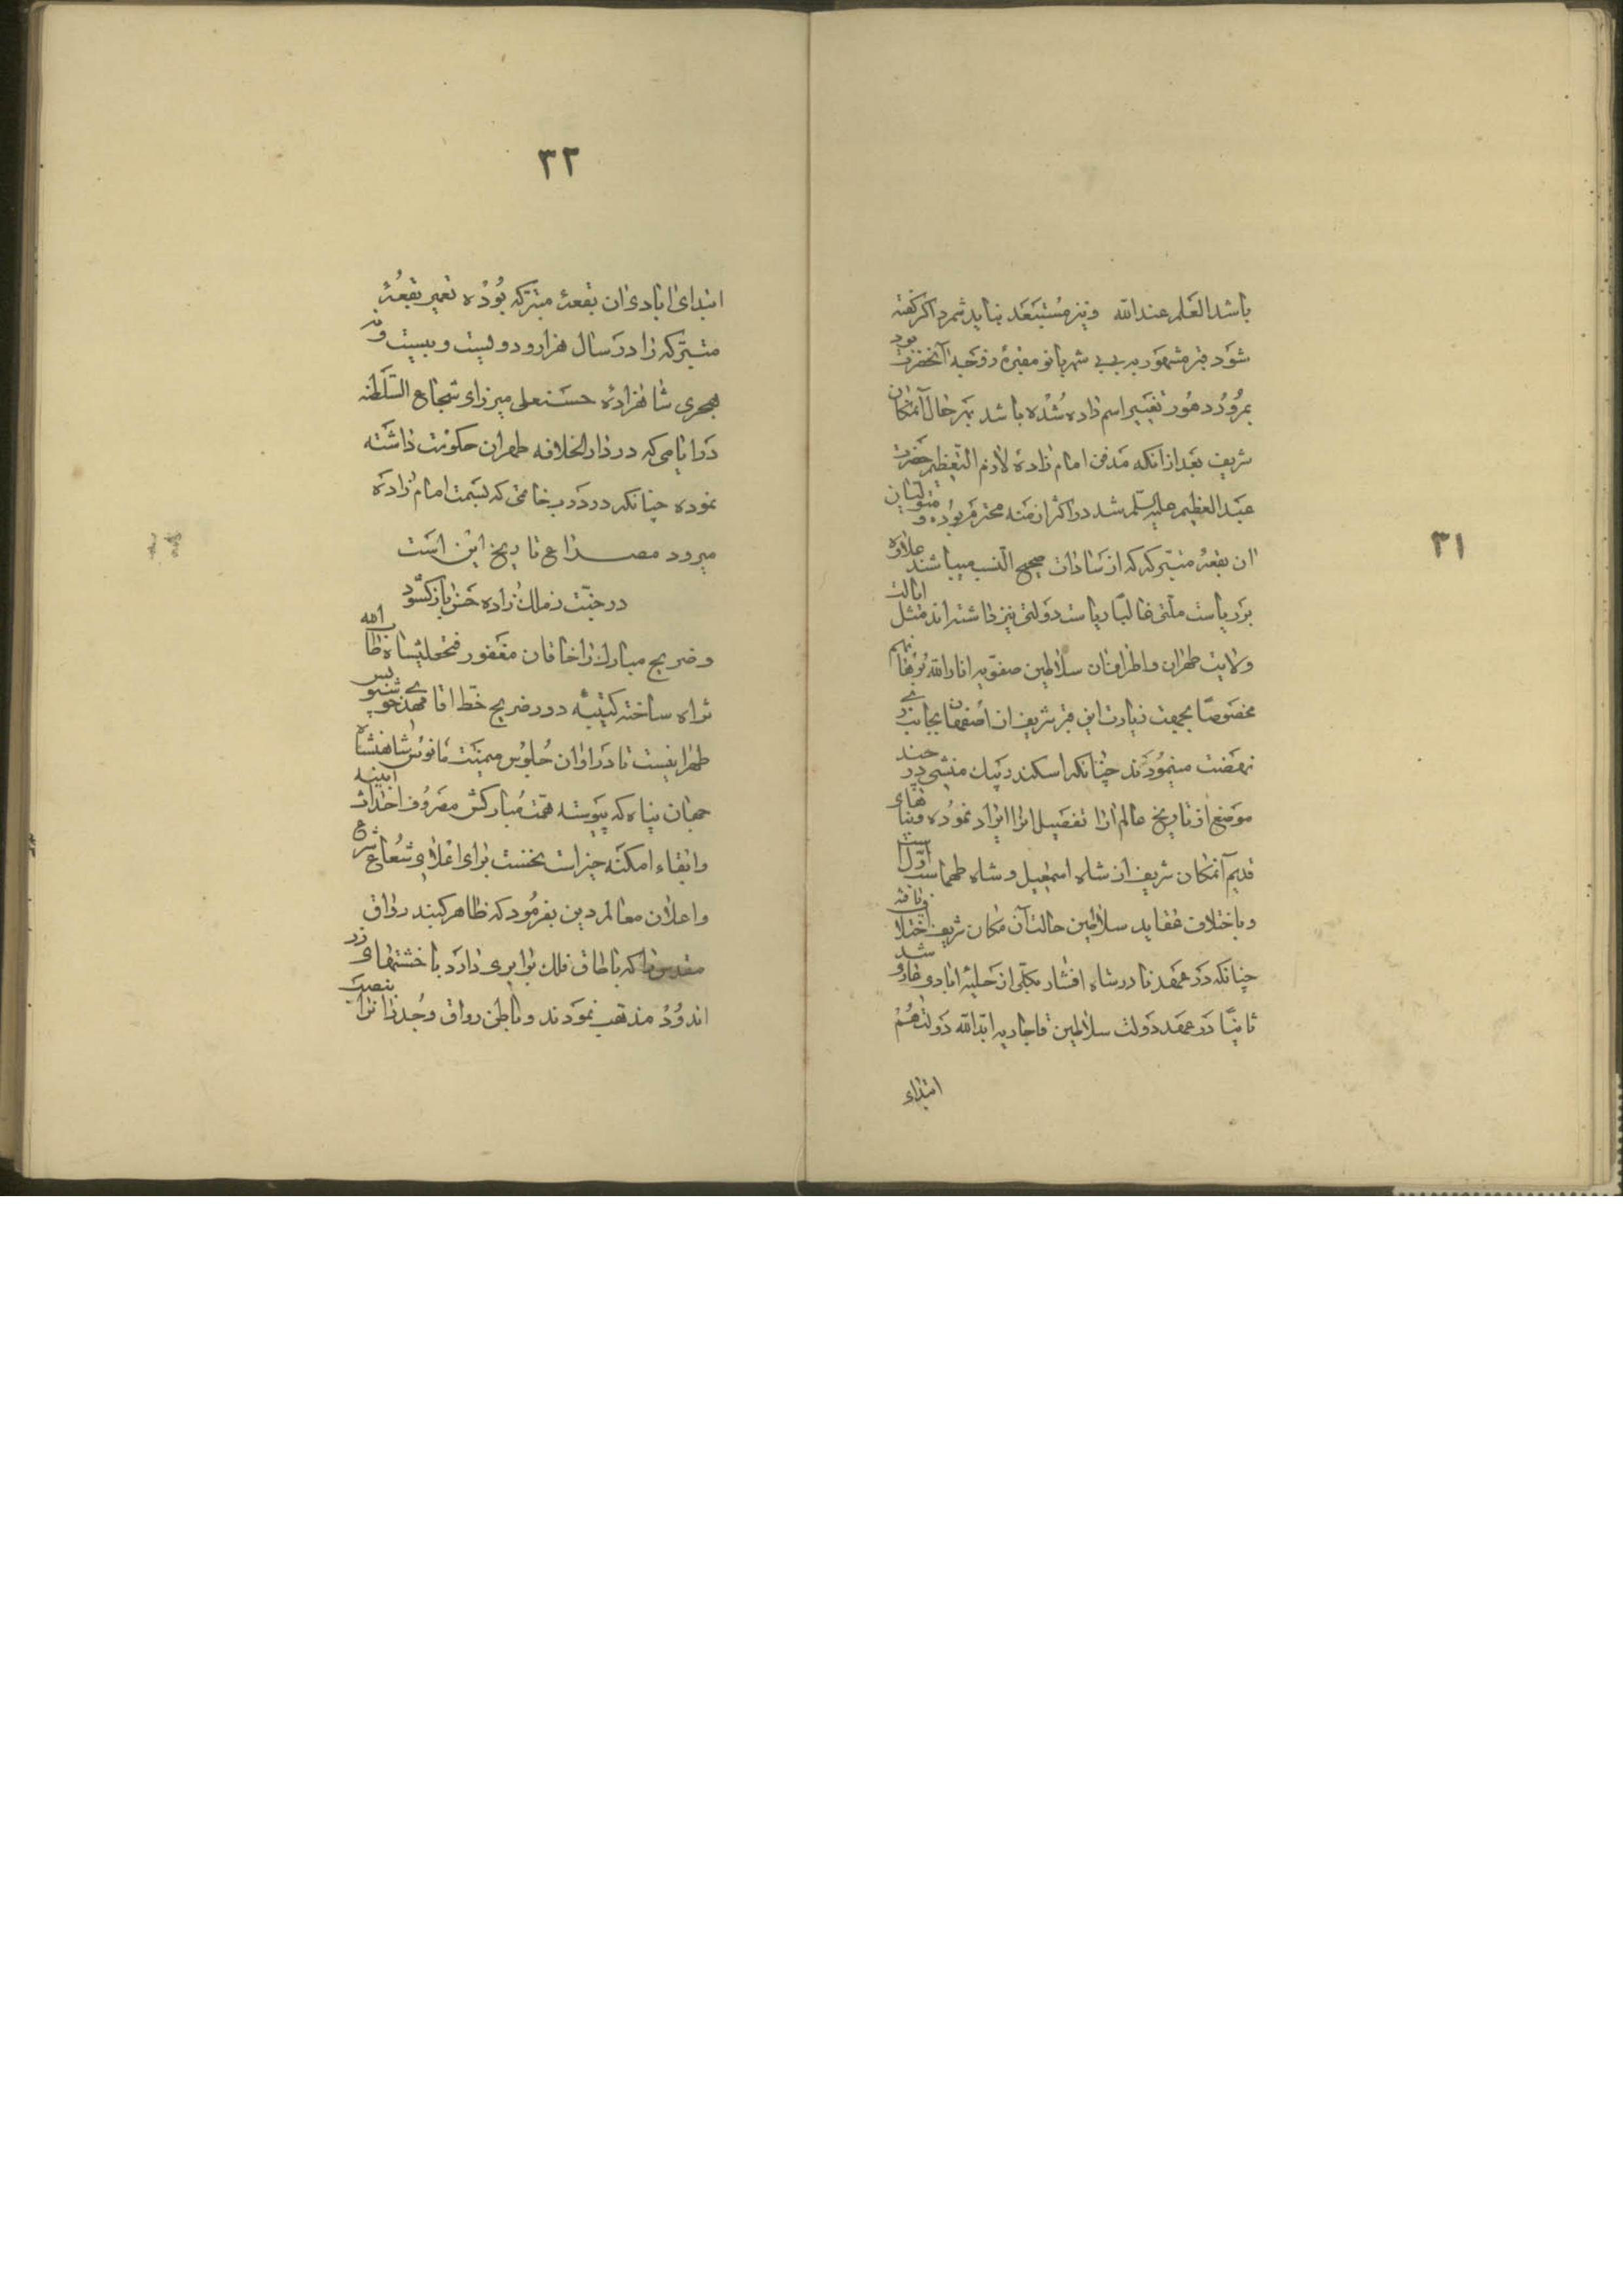 ٣١
باشد العلم عند الله و نیز مستبعد نباید شمرد اگر گفته
شود قبر مشهور به بی بی شهربانو مقبرهٔ زوجهٔ آنحضرت بود
بمرور دهور تغییر اسم داده شده باشد بهر حال آنمکان
شریف بعد از آنکه مدفن امام زادهٔ لازم التعظیم حضرت
عبد العظیم علیه السلم شد در اکثر ازمنه محترم بوده و متولیان
ان بقعهٔ متبرکه که از سادات صحیح النسب میباشند علاوه
بر ریاست ملتی غالباً ریاست دولتی نیز داشته اند مثل ایالت
ولایت طهران و اطراف ان سلاطین صفویه انار الله برهانهم
مخصوصاً بجهت زیارت این قبر شریف از اصفهان بجانب ری
نهضت مینمودند چنانکه اسکندر بیک منشی در چند
موضع از تاریخ عالم ارا تفصیل انرا ایراد نموده و بناهای
قدیم آنمکان شریف از شاه اسمعیل و شاه طهماسب اول است
و باختلاف عقاید سلاطین حالت آن مکان شریف اختلاف یافته
چنانکه در عهد نادر شاه افشار بکلی از حلیهٔ ابادی عاری شد و
ثانیاً در عهد دولت سلاطین قاجاریه ابد الله دولتهم
ابتداء
٣٢
ابتدای ابادی ان بقعهٔ متبرکه بوده تعمیر بقعهٔ
متبرکه را در سال هزار و دویست و بیست و نه
هجری شاهزاده حسنعلی میرزای شجاع السلطنه
در ایامی که در دار الخلافه طهران حکومت داشته
نموده چنانکه در درب خاتمی که بسمت امام زاده
میرود مصراع تاریخ این است
در جنت ز ملک زاده حسن باز گشود
و ضریح مبارک را خاقان مغفور فتحعلیشاه طاب الله
ثراه ساخته کتیبهٔ دور ضریح خط اقا مهدی خوشنویس
طهرانیست تا در اوان جلوس میمنت مانوس شاهنشاه
جهان پناه که پیوسته همت مبارکش مصروف احداث ابنیه
و ابقاء امکنه خیر است نخست برای اعلای شعاع شرع
و اعلان معالم دین بفرمود که ظاهر گنبد رواق
مقدس را که با طاق فلک برابری دارد با خشتهای زر
اندود مذهب نمودند و باطن رواق و جدران را بنصب